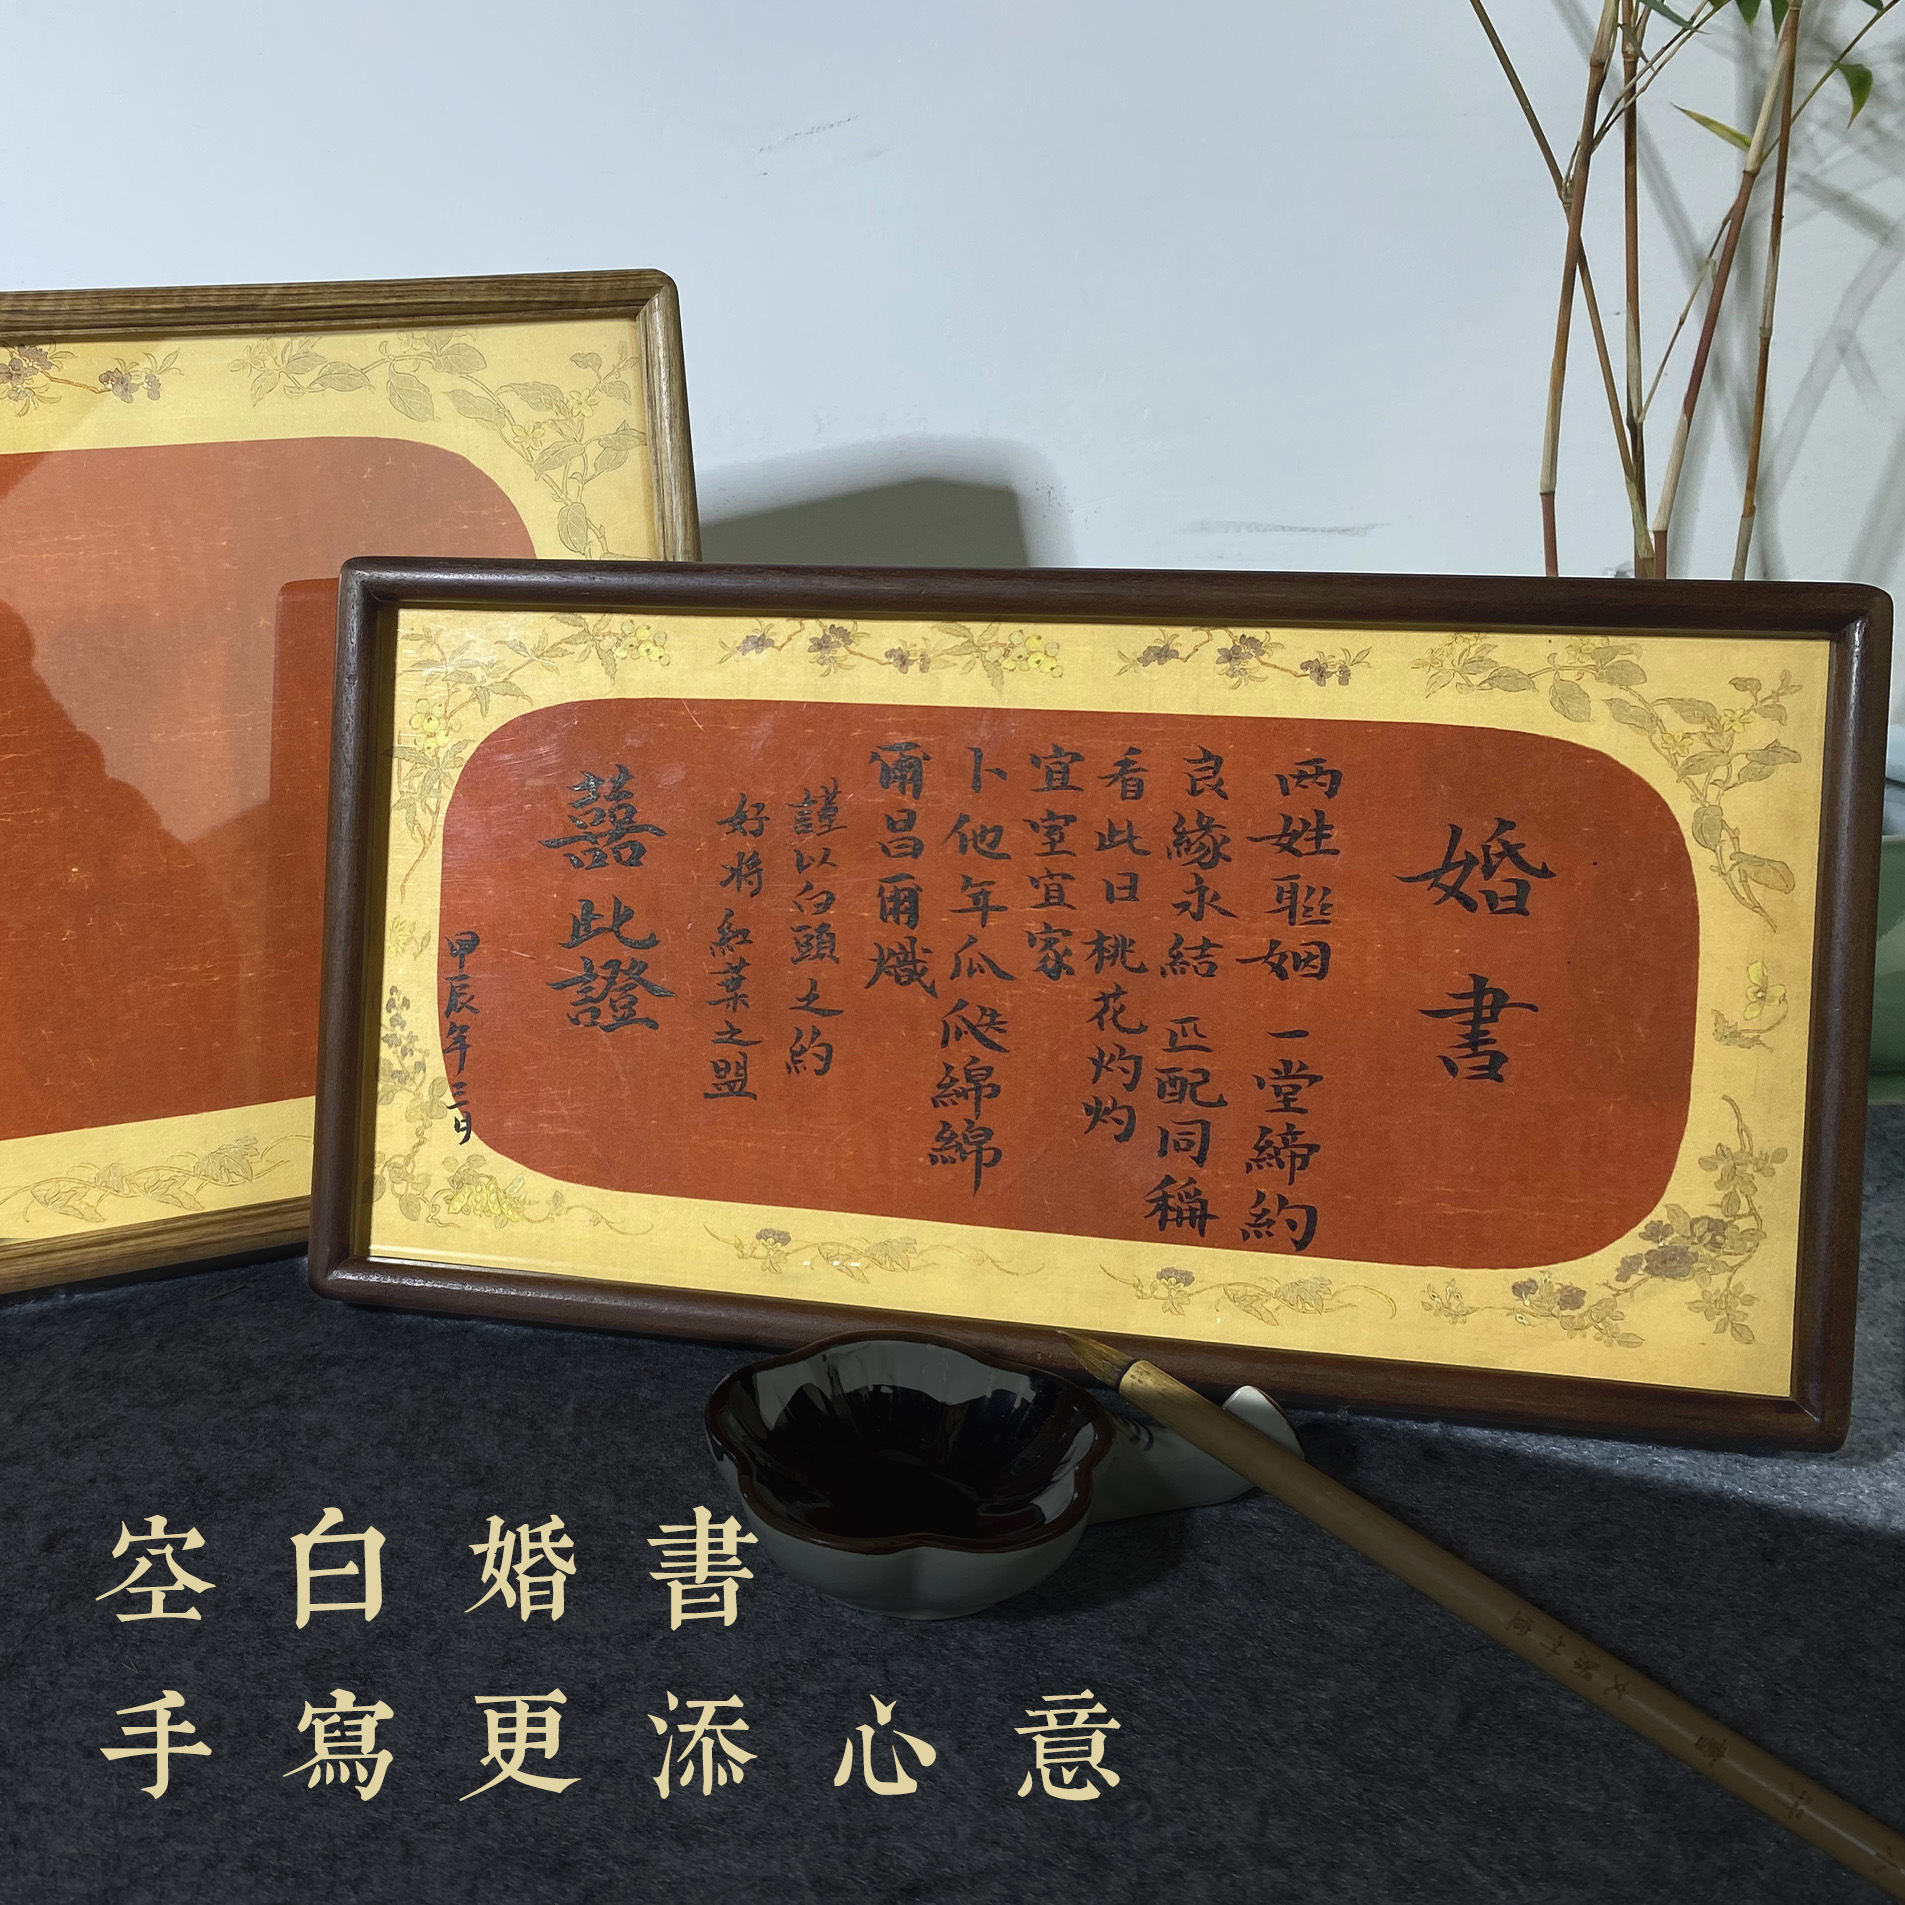 婚書
两姓聯姻 一堂締約
良緣永結 匹配同稱
看此日桃花灼灼
宜室宜家
卜他年瓜瓞綿綿
爾昌爾熾
謹以白頭之約
好將紅葉之盟
囍此證
甲辰年三日
空白婚書
手寫更添心意